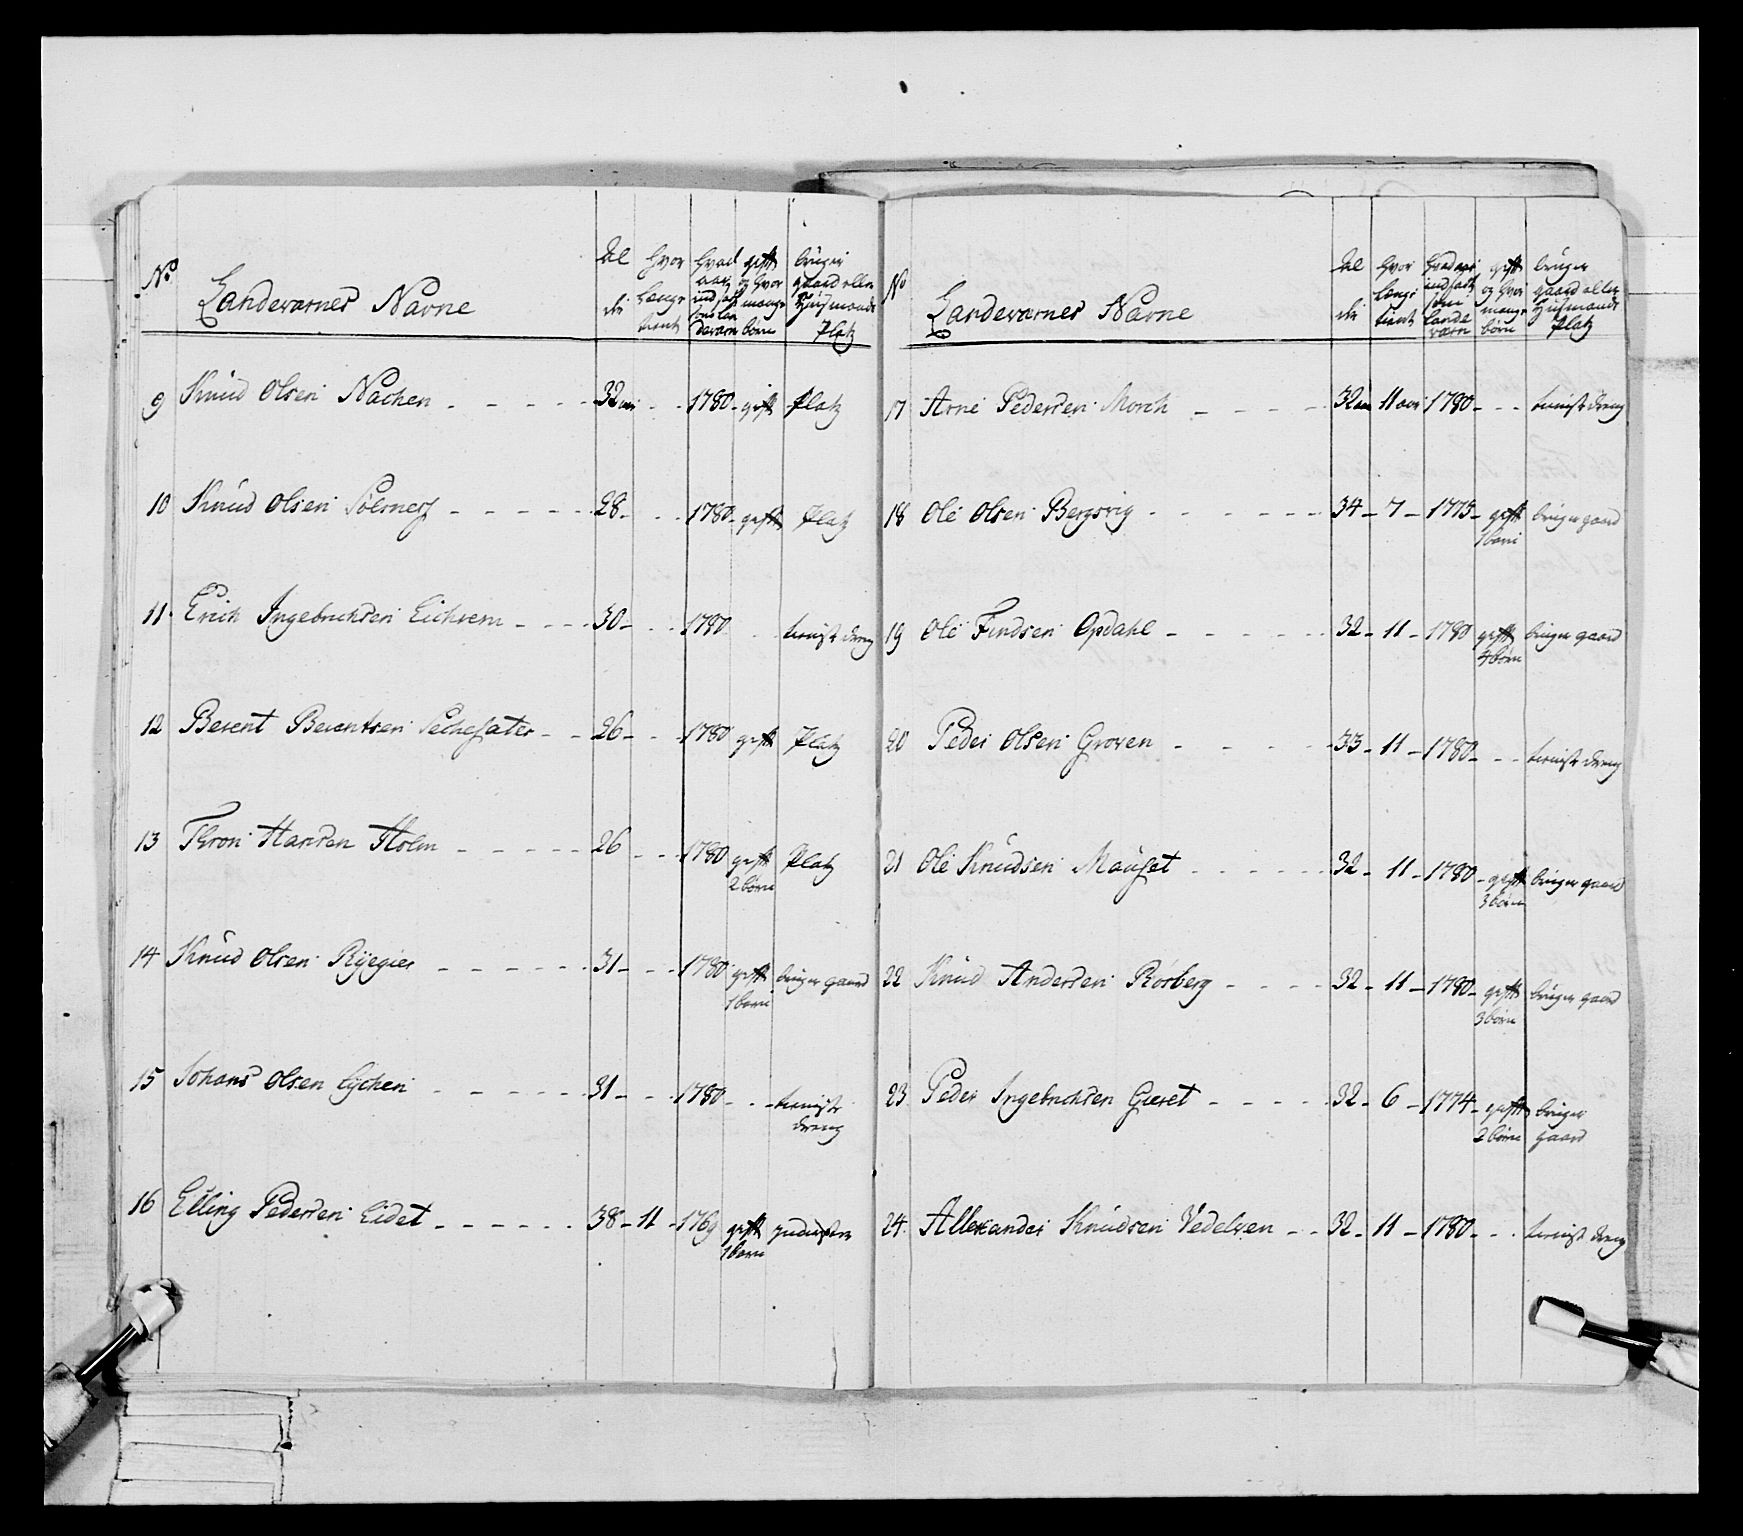 No Landeværnes Navne Al der hvor længe tient hvad aar indsadt som lan deværn gift og hvor mange børn bruger gaard eller Huusmands Platz
9 Knud Olsen Nachen 32 aar 1780 gift Platz
10 Knud Olsen 28 1780 gift Platz
11 Erich Ingebrichsen Eichrem 30 1780 tieniste dreng
12 Berent Berentsen 26 1780 gift Platz
13 Thron Hansen Holm 26 1780 gift Platz
2 børn
14 Knud Olsen 31 1780 gift bruger gaard
1 barn
15 Johans Olsen Lychen 31 1780 tieniste
dreng
16 Elling Pedersen Eidet 38 11 1769 gift
1 barn
No Landeværnes Navne Al der hvor længe tient hvad aar indsadt som lande værn gift og hvor mange børn bruger gaard eller Huusmands Platz
17 Arne Pedersen Morch 32 aar 11 aar 1780 tieniste dreng
18 Ole Olsen Bergsvig 34 7 1775 gift bruger gaard
1 barn
19 Ole Findsen Opdahl 32 11 1780 gift bruger gaard
4 børn
20 Peder Olsen Groven 33 11 1780 tieniste dreng
21 Ole Knudsen Mauset 32 11 1780 gift bruger gaard
3 børn
22 Knud Andersen Rörberg 32 11 1780 gift bruger gaard
3 børn
23 Peder Ingebrichsen Gieret 32 6 1774 gift bruger
2 børn gaard
24 Allexander Knudsen Vedelven 32 11 1780 tieniste dreng